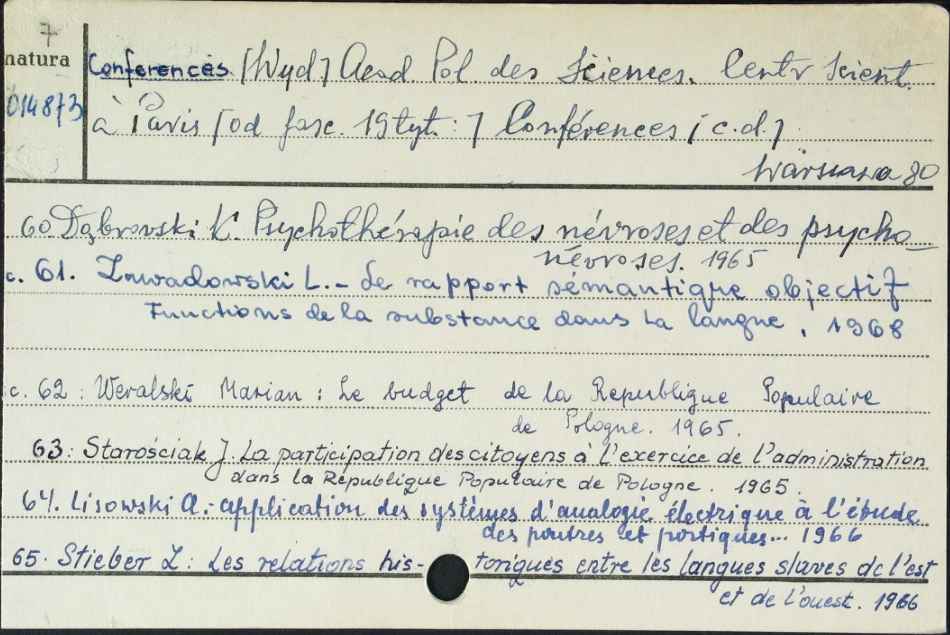 7
natura
014873
Conferences [Wyd] Acad Pol des Sciences. Centr Scient.
à Paris [od fasc. 19 tyt.:] Conférences [c.d.]
Warszawa 80
60. Dąbrowski K. Psychothérapie des névroses et des psycho-
névroses. 1965
c. 61. Zawadowski L. - Le rapport sémantique objectif
Functions de la substance dans la langue, 1968
c. 62: Weralski Marian: Le budget de la Republique Populaire
de Pologne. 1965.
63: Starościak J. La participation des citoyens à l'exercice de l'administration
dans la République Populaire de Pologne. 1965.
64. Lisowski A.: application des systèmes d'analogie électrique à l'étude
des poutres et portiques... 1966
65. Stieber Z: Les relations his- toriques entre les langues slaves de l'est
et de l'ouest. 1966